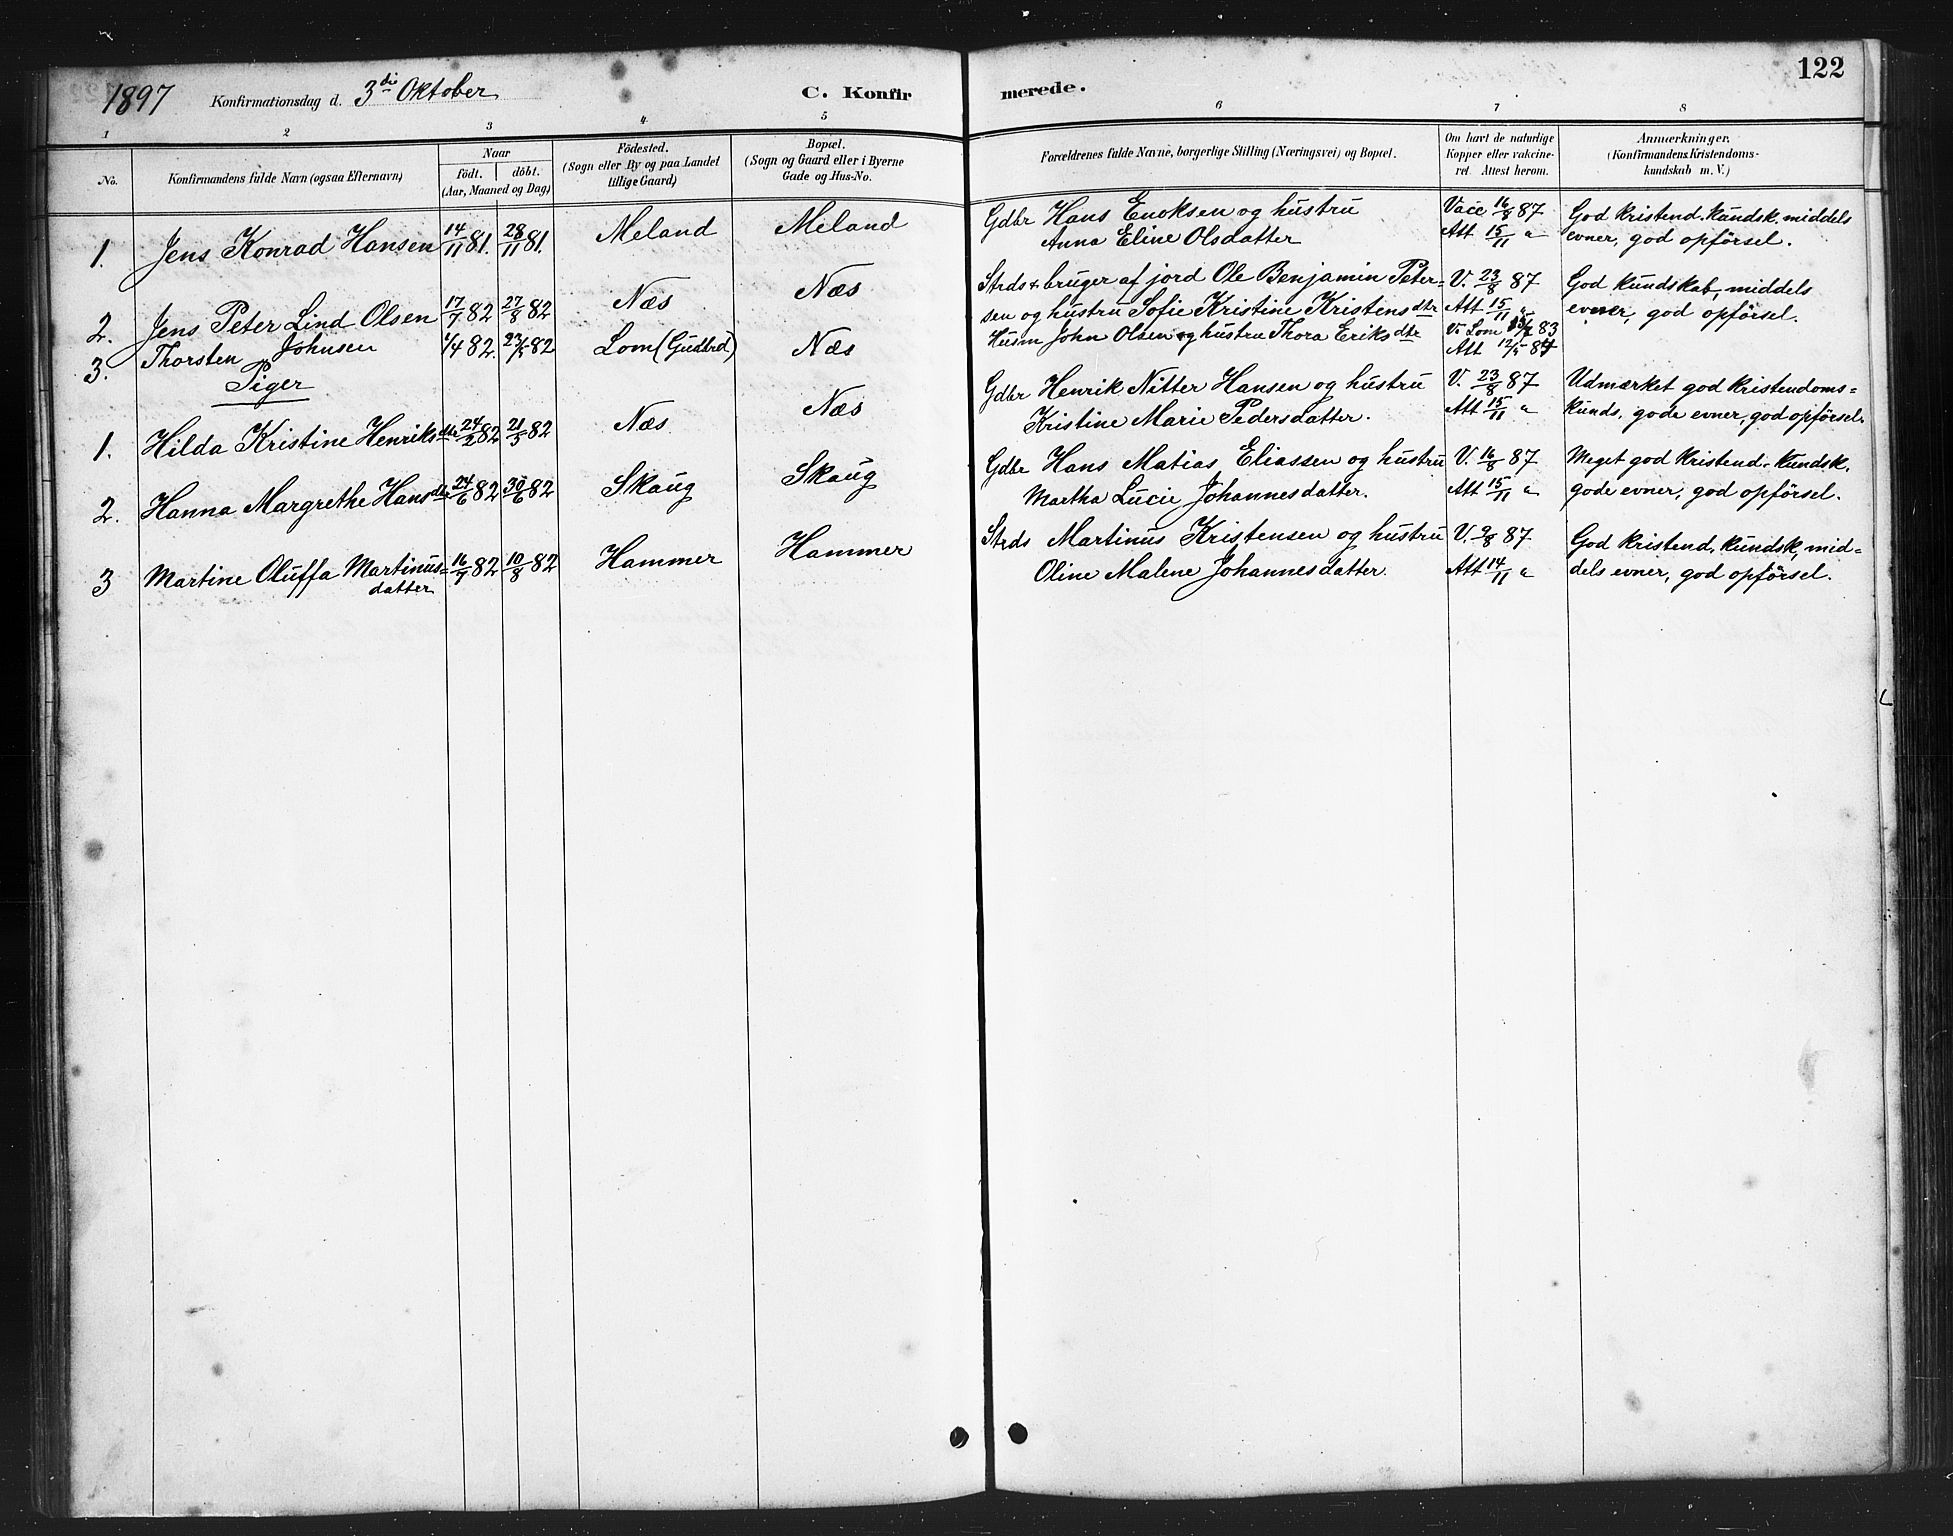 1897 Konfirmationsdag d. 3die Oktober C. Konfirmerede. 122
1 2 3 4 5 6 7 8
No. Konfirmandens fulde Navn (ogsaa Efternavn) Naar födt. döbt. (Aar, Maaned og Dag) Födested. (Sogn eller By og paa Landet tillige Gaard) Bopæl. (Sogn og Gaard eller i Byerne Gade og Hus-No. Forældrenes fulde Navne, borgerlige Stilling (Næringsvei) og Bopæl. Om havt de naturlige Kopper eller vakcineret. Attest herom. Anmerkninger, (Konfirmandens Kristendomskundskab m. V.)
1. Jens Konrad Hansen 14/11 81. 28/11 81. Meland Meland Gdbr Hans Enoksen og hustru Vacc 16/8 87 God kristend. kundsk, middels
Anna Eline Olsdatter Att 15/11 " evner, god opförsel.
2. Jens Peter Lind Olsen 17/7 82 27/8 82 Næs Næs Strds & bruger af jord Ole Benjamin Peter= V. 23/8 87 God kundskab, middels
sen og hustru Sofie Kristine Kristensdtr Att 15/11 " evner, god opförsel.
3. Thorsten Johnsen /4 82. /5 82 Lom (Gudbrd) Næs Husm John Olsen og hustru Thora Eriksdtr V. Lom 83
Att 12/5 87
Piger
1. Hilda Kristine Henriksdtr 24/2 82 21/5 82 Næs Næs Gdbr Henrik Nitter Hansen og hustru V. 23/8 87 Udmærket god kristendoms=
Kristine Marie Pedersdatter. Att 15/11 " kunds, gode evner, god opförsel.
2. Hanna Margrethe Hansdtr 24/6 82 30/6 82 Skaug Skaug Gdbr Hans Matias Eliassen og hustru V. 16/8 87 Meget god kristend. kundsk,
Martha Lucie Johannesdatter. Att 15/11 " gode evner, god opförsel.
3 Martine Oluffa Martinus= 16/7 82 10/8 82 Hammer Hammer Strds Martinus Kristensen og hustru V. 9/8 87 God kristend. kundsk, mid=
datter Oline Malene Johannesdatter. Att 14/11 " dels evner, god opförsel.